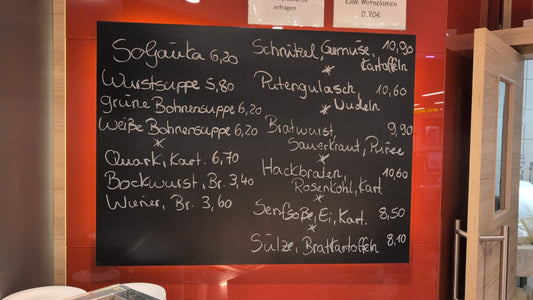 erfragen
zum Mitnehmen
0,70€
Soljanka 6,20
Wurstsuppe 5,80
grüne Bohnensuppe 6,20
Weiße Bohnensuppe 6,20
*
Quark, Kart. 6,70
Bockwurst, Br. 3,40
Wiener, Br. 3,60
Schnitzel, Gemüse, 10,90
* Kartoffeln
Putengulasch, 10,60
* Nudeln
Bratwurst, 9,90
Sauerkraut, Püree
*
Hackbraten, 10,60
Rosenkohl, Kart.
*
Senfsoße, Ei, Kart. 8,50
*
Sülze, Bratkartoffeln 8,10